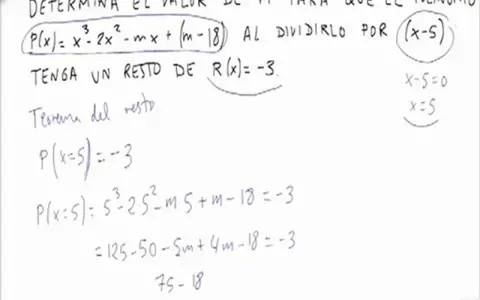 DETERMINA EL VALOR DE M PARA QUE EL POLINOMIO
P(x) = x³-2x²-mx+(m-18) AL DIVIDIRLO POR (x-5)
TENGA UN RESTO DE R(x)=-3.
x-5=0
x=5
Teorema del resto
P(x=5)=-3
P(x=5)= 5³-2·5²-m5+m-18=-3
=125-50-5m+4m-18=-3
75-18